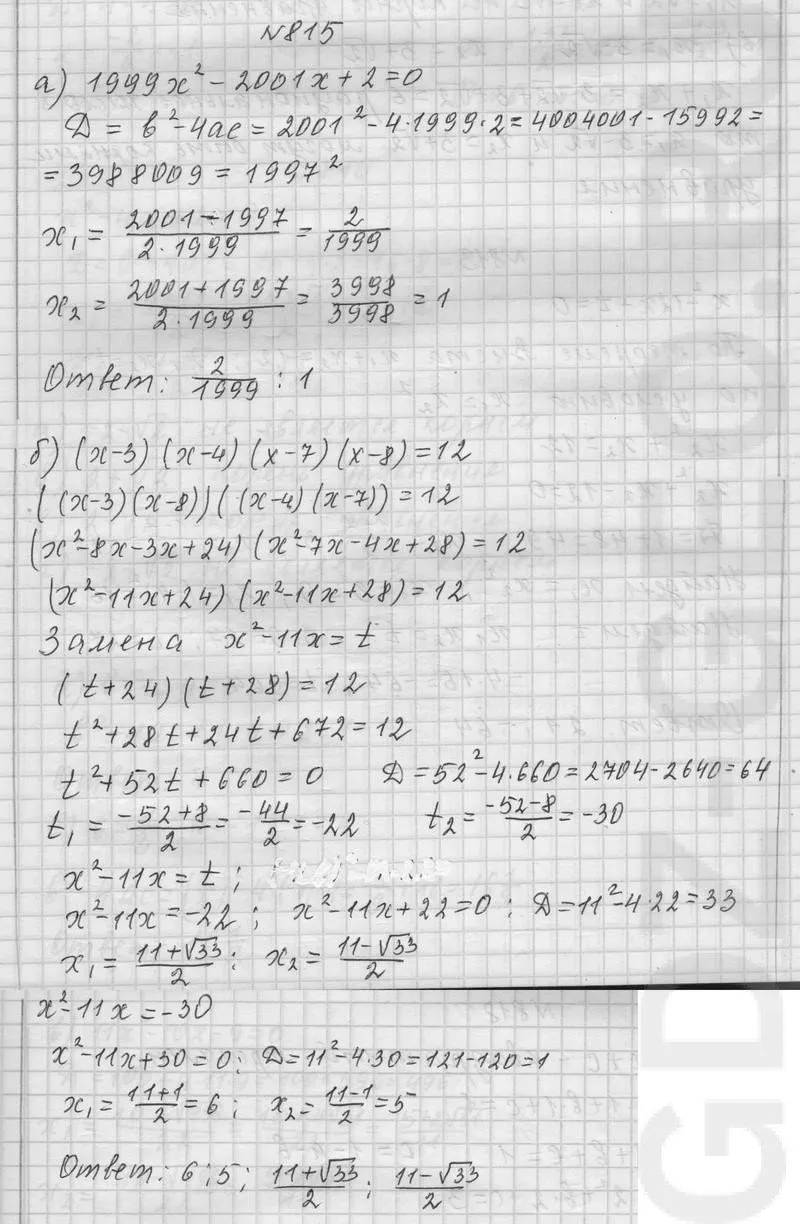 N815
а) 1999x² - 2001x + 2 = 0
D = b² - 4ac = 2001² - 4·1999·2 = 4004001 - 15992 =
= 3988009 = 1997²
x₁ = (2001 - 1997)/(2·1999) = 2/1999
x₂ = (2001 + 1997)/(2·1999) = 3998/3998 = 1
Ответ: 2/1999 ; 1
б) (x-3) (x-4) (x-7) (x-8) = 12
((x-3)(x-8)) ((x-4)(x-7)) = 12
(x²-8x-3x+24) (x²-7x-4x+28) = 12
(x²-11x+24) (x²-11x+28) = 12
Замена x²-11x = t
(t+24) (t+28) = 12
t²+28t+24t+672 = 12
t²+52t+660 = 0 D = 52²-4·660 = 2704-2640 = 64
t₁ = (-52+8)/2 = -44/2 = -22 t₂ = (-52-8)/2 = -30
x²-11x = t ;
x²-11x = -22 ; x²-11x+22 = 0 ; D = 11²-4·22 = 33
x₁ = (11+√33)/2 ; x₂ = (11-√33)/2
x²-11x = -30
x²-11x+30 = 0 ; D = 11²-4·30 = 121-120 = 1
x₁ = (11+1)/2 = 6 ; x₂ = (11-1)/2 = 5
Ответ: 6 ; 5 ; (11+√33)/2 ; (11-√33)/2